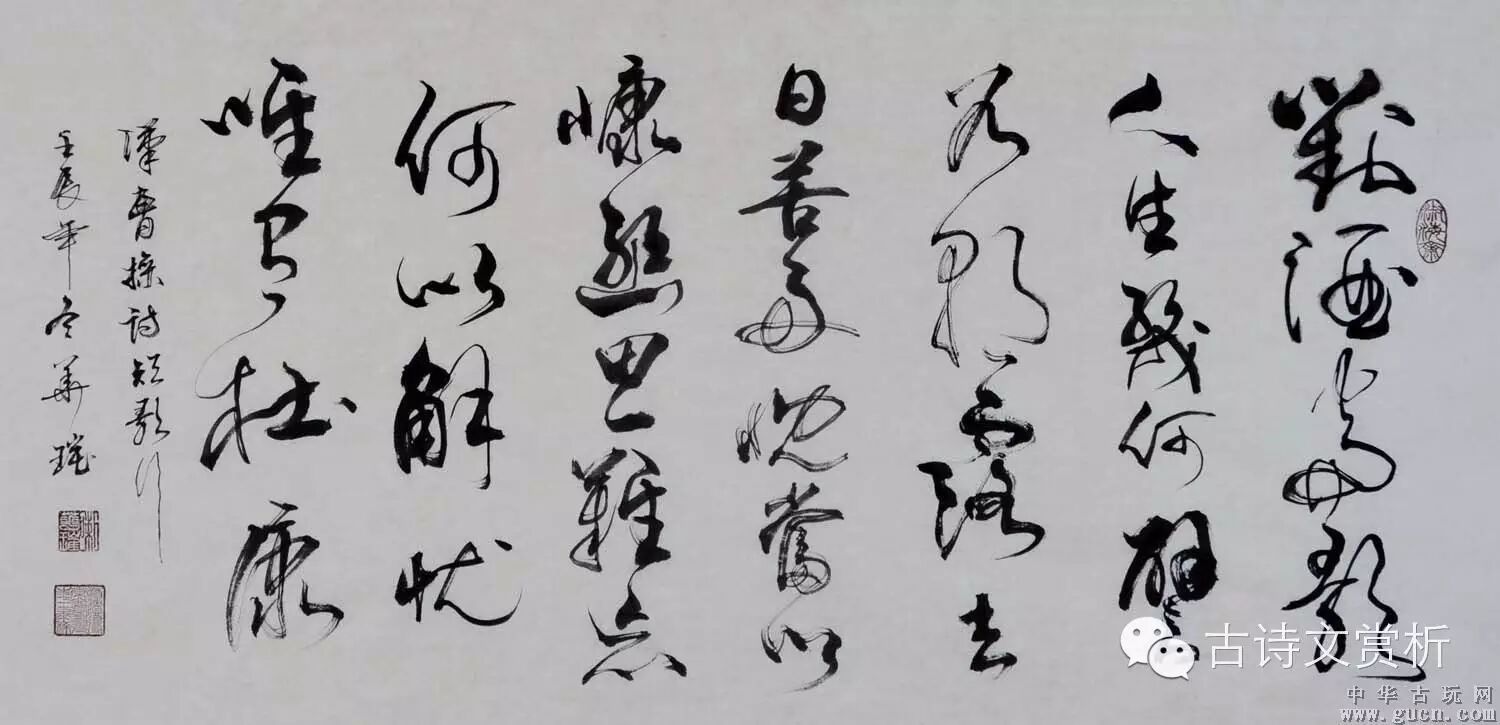 對酒當歌
人生幾何譬
若朝露去
日苦多慨當以
慷憂思難忘
何以解忧
唯有杜康
漢曹操詩短歌行
壬辰年冬華瑞
古诗文赏析
中华古玩网
www.gucn.com